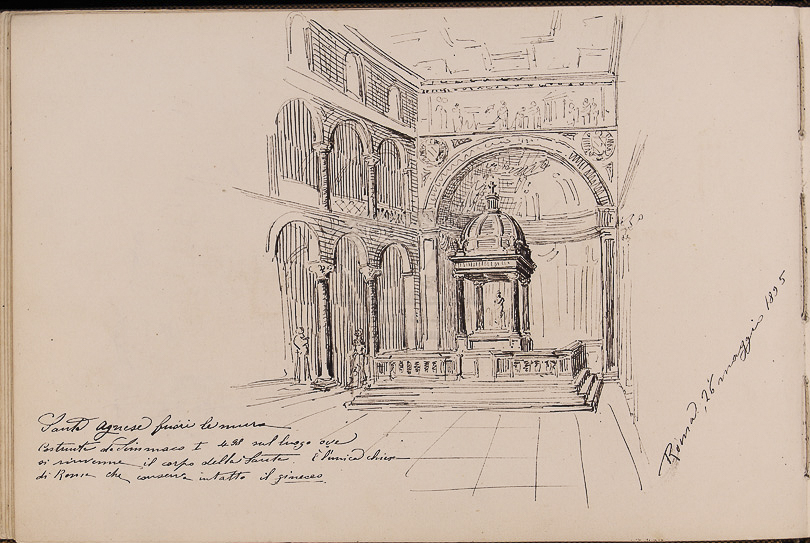 Sant Agnese fuori le mura
Costruita da Simmaco † 498 sul luogo ove
si rinvenne il corpo della Santa È l'unica chiesa
di Roma che conserva intatto il gineceo
Roma, 26 maggio 1895